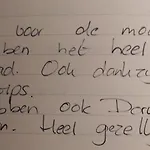 voor de mo
ben het heel
ad. Ook dank zij
ips.
bben ook Der
n. Heel gezell